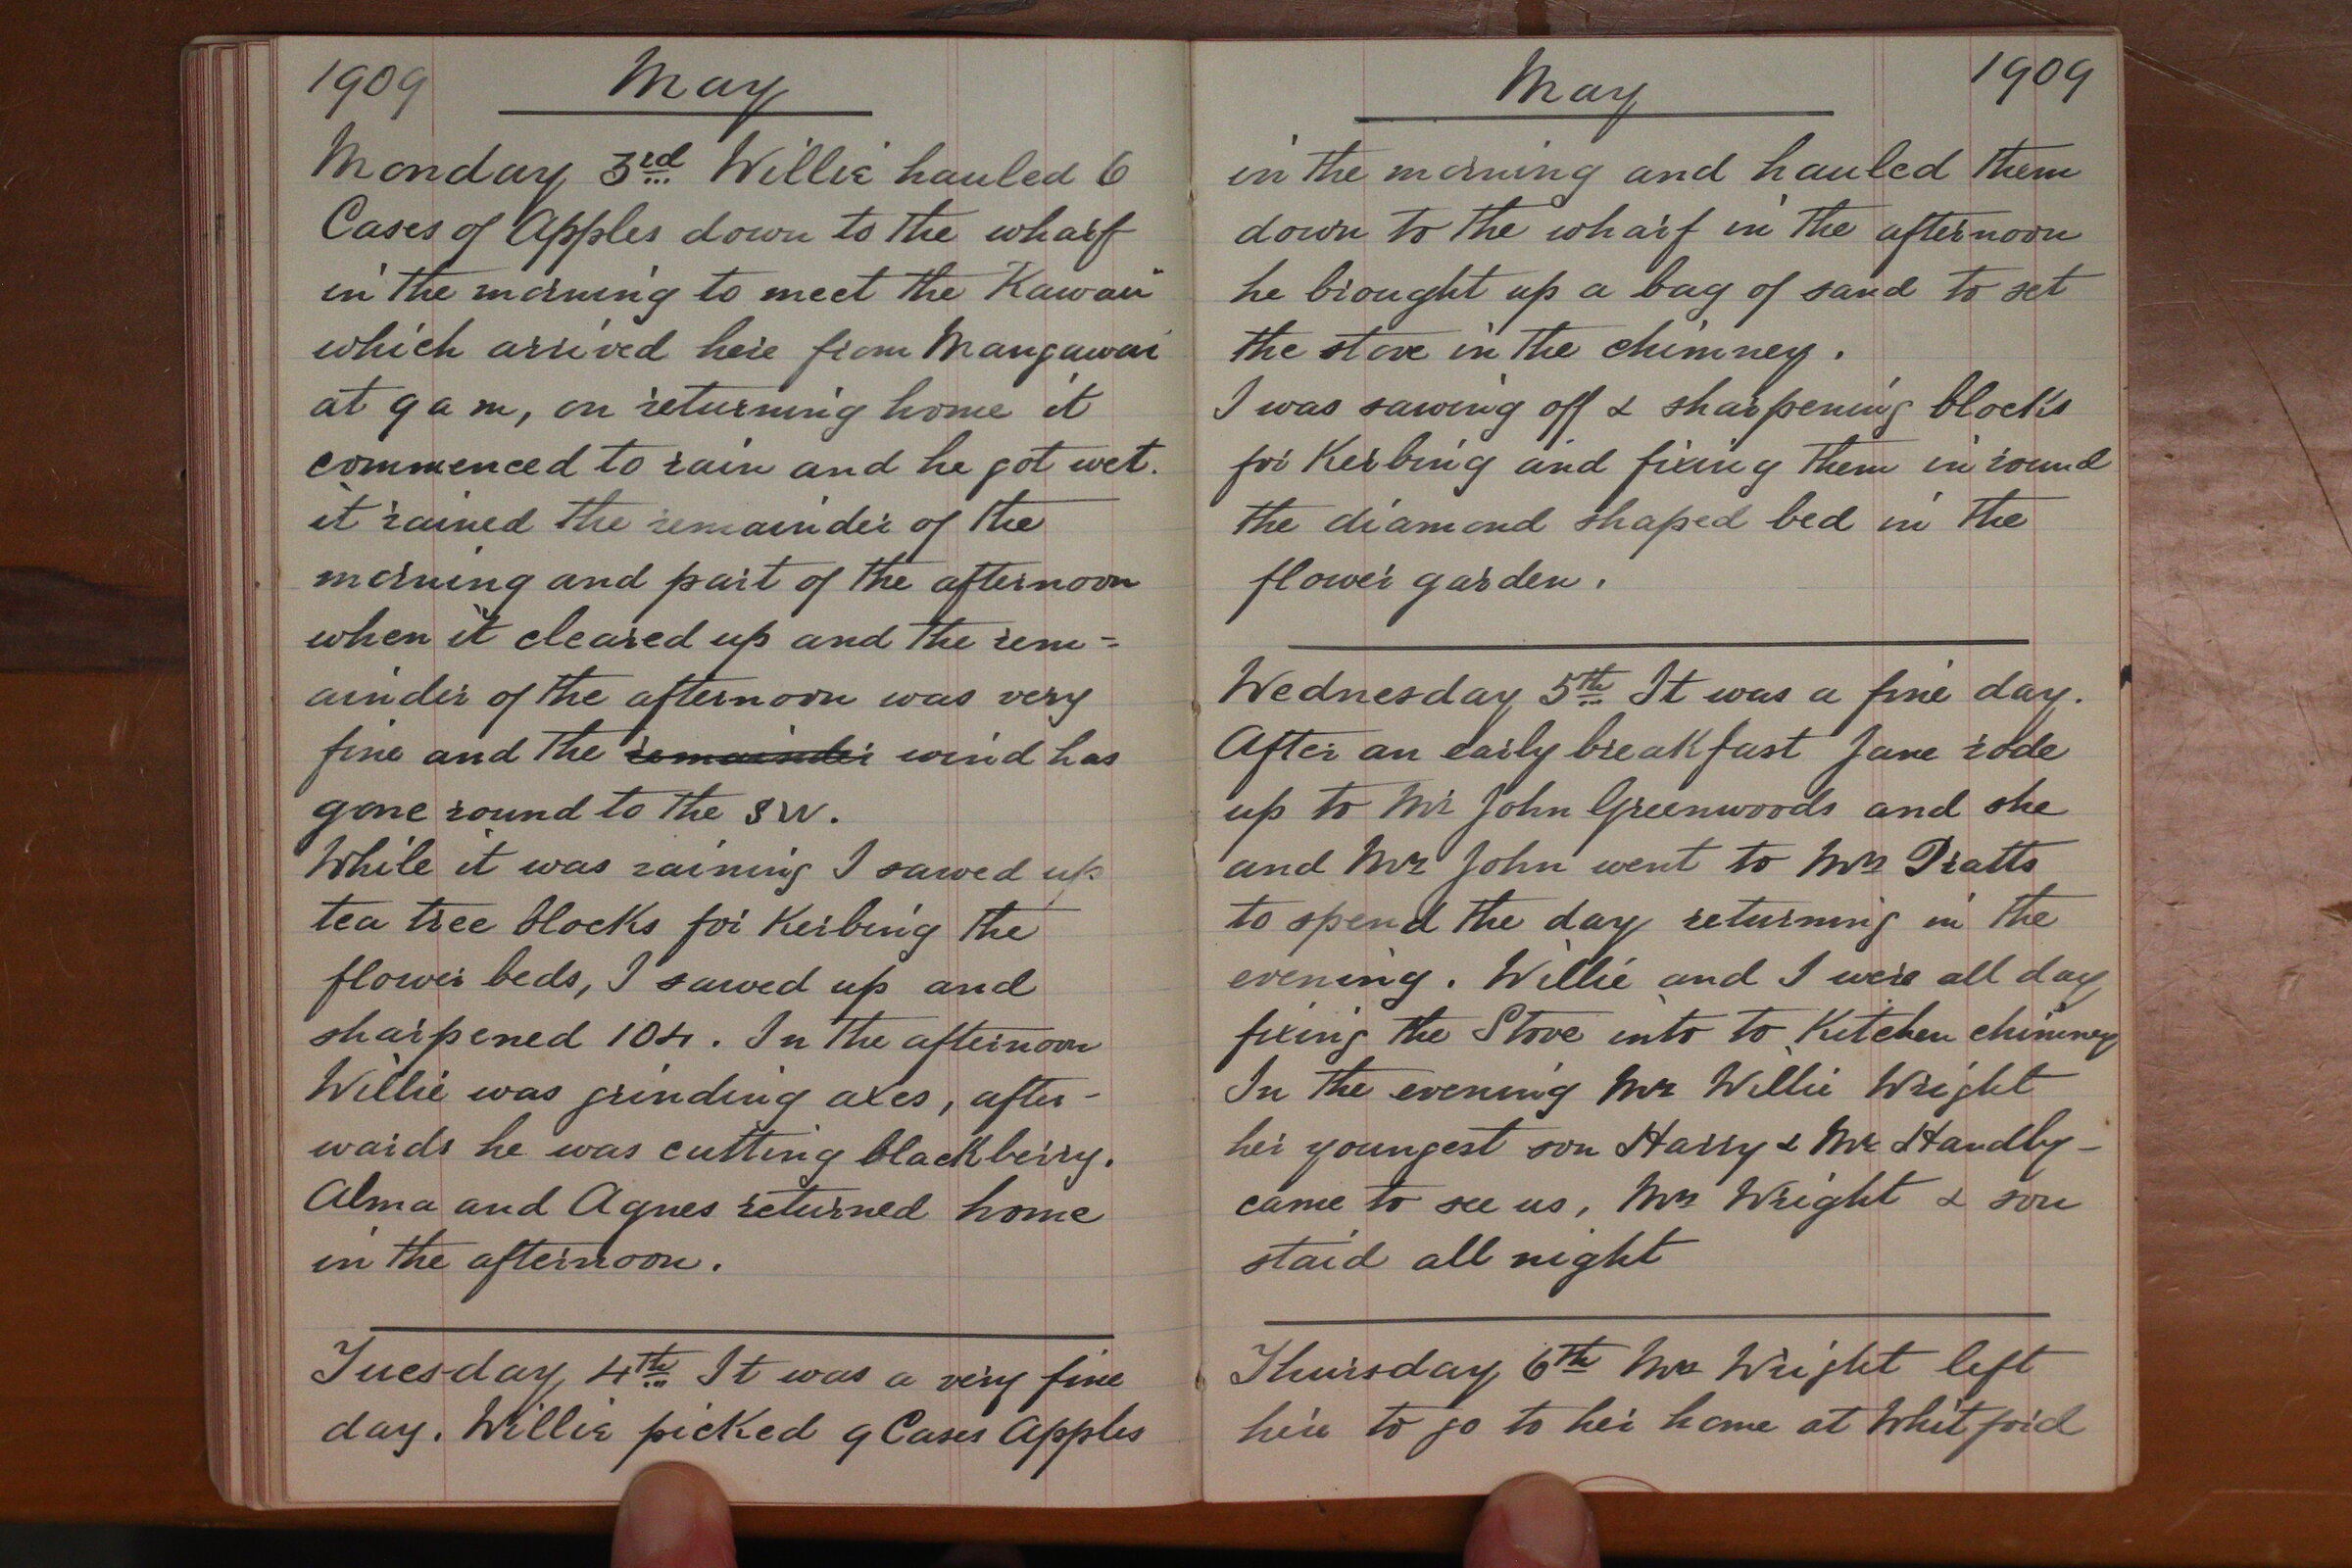 1909 May
Monday 3rd Willie hauled 6
Cases of Apples down to the wharf
in the morning to meet the Kawau
which arrived here from Mangawai
at 9 a m, on returning home it
commenced to rain and he got wet.
it rained the remainder of the
morning and part of the afternoon
when it cleared up and the rem=
ainder of the afternoon was very
fine and the remainder wind has
gone round to the SW.
While it was raining I sawed up
tea tree blocks for Kerbing the
flower beds, I sawed up and
sharpened 104. In the afternoon
Willie was grinding axes, after-
wards he was cutting blackberry.
Alma and Agnes returned home
in the afternoon.
Tuesday 4th It was a very fine
day. Willie picked 9 Cases Apples
May 1909
in the morning and hauled them
down to the wharf in the afternoon
he brought up a bag of sand to set
the stove in the chimney.
I was sawing off & sharpening blocks
for Kerbing and fixing them in round
the diamond shaped bed in the
flower garden.
Wednesday 5th It was a fine day.
After an early breakfast Jane rode
up to Mr John Greenwoods and she
and Mrs John went to Mrs Pratts
to spend the day returning in the
evening. Willie and I were all day
fixing the Stove into to Kitchen chimney
In the evening Mrs Willie Wright
her youngest son Harry & Mr Handby-
came to see us, Mrs Wright & son
staid all night
Thursday 6th Mrs Wright left
here to go to her home at Whitford